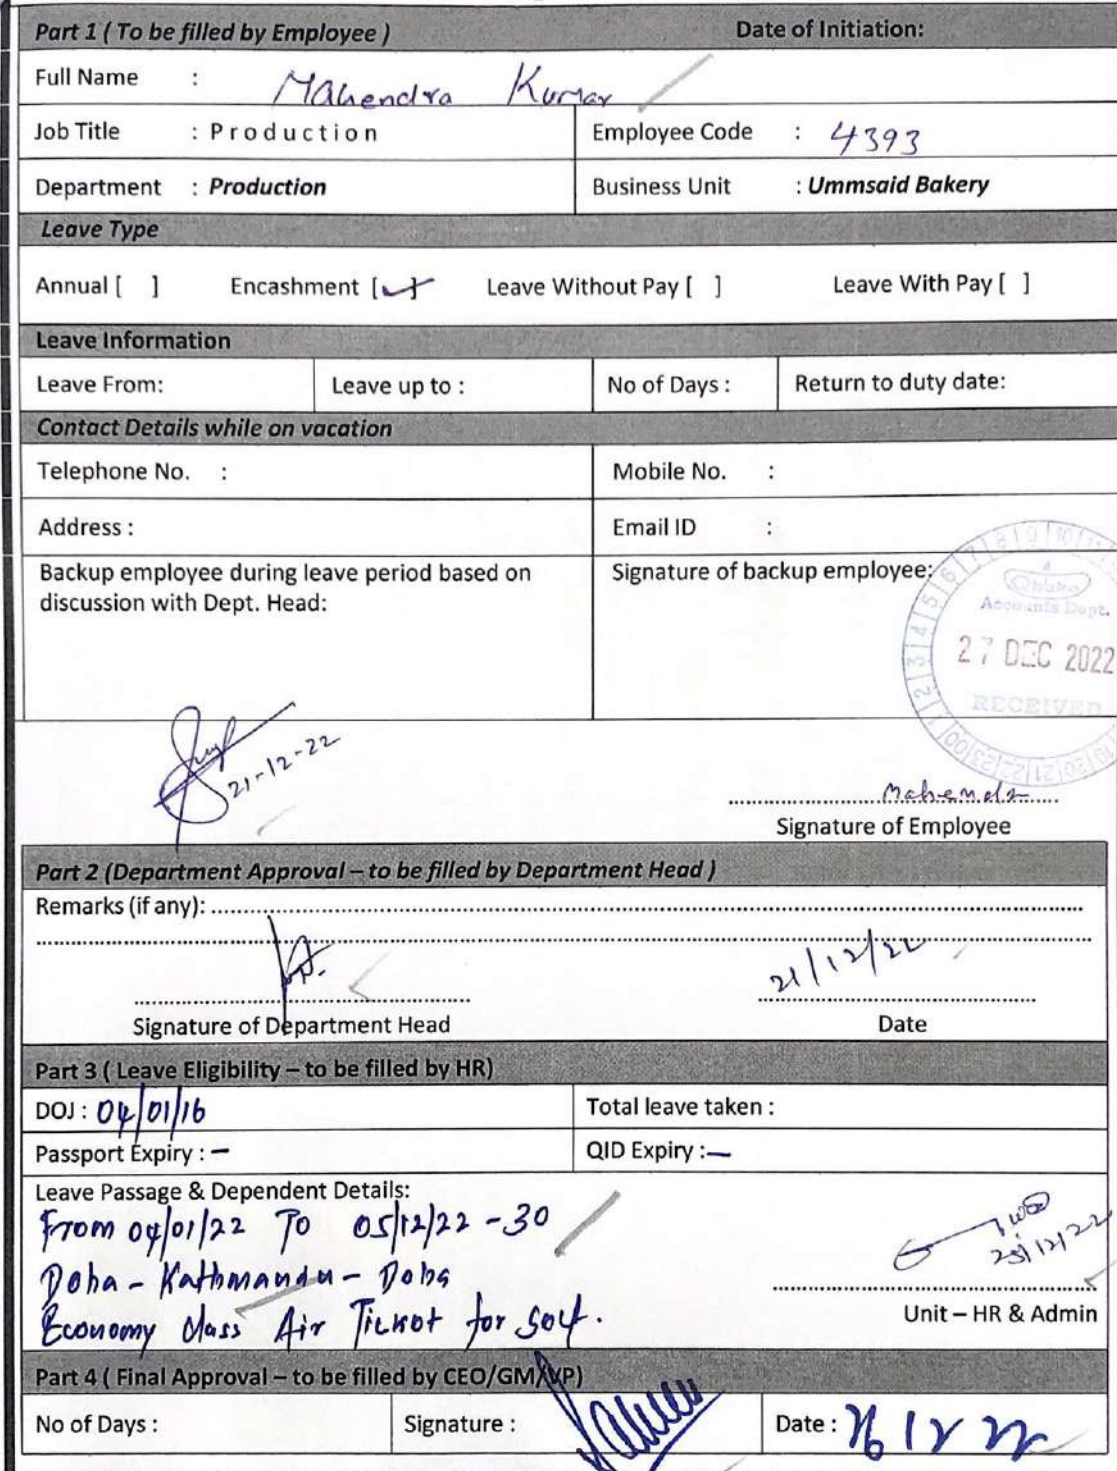 Part 1 ( To be filled by Employee ) Date of Initiation:
Full Name : Mahendra Kumar
Job Title : Production Employee Code : 4393
Department : Production Business Unit : Ummsaid Bakery
Leave Type
Annual [ ] Encashment [✓] Leave Without Pay [ ] Leave With Pay [ ]
Leave Information
Leave From: Leave up to : No of Days : Return to duty date:
Contact Details while on vacation
Telephone No. : Mobile No. :
Address : Email ID :
Backup employee during leave period based on Signature of backup employee:
discussion with Dept. Head:
Accounts Dept.
27 DEC 2022
RECEIVED
21-12-22
Signature of Employee
Part 2 (Department Approval – to be filled by Department Head )
Remarks (if any):
21/12/22
Signature of Department Head Date
Part 3 ( Leave Eligibility – to be filled by HR)
DOJ : 04/01/16 Total leave taken :
Passport Expiry : – QID Expiry :–
Leave Passage & Dependent Details:
From 04/01/22 To 05/12/22 - 30
Doha - Kathmandu - Doha
Economy Class Air Ticket for self.
Unit – HR & Admin
Part 4 ( Final Approval – to be filled by CEO/GM/VP)
No of Days : Signature : Date : 26 12 22